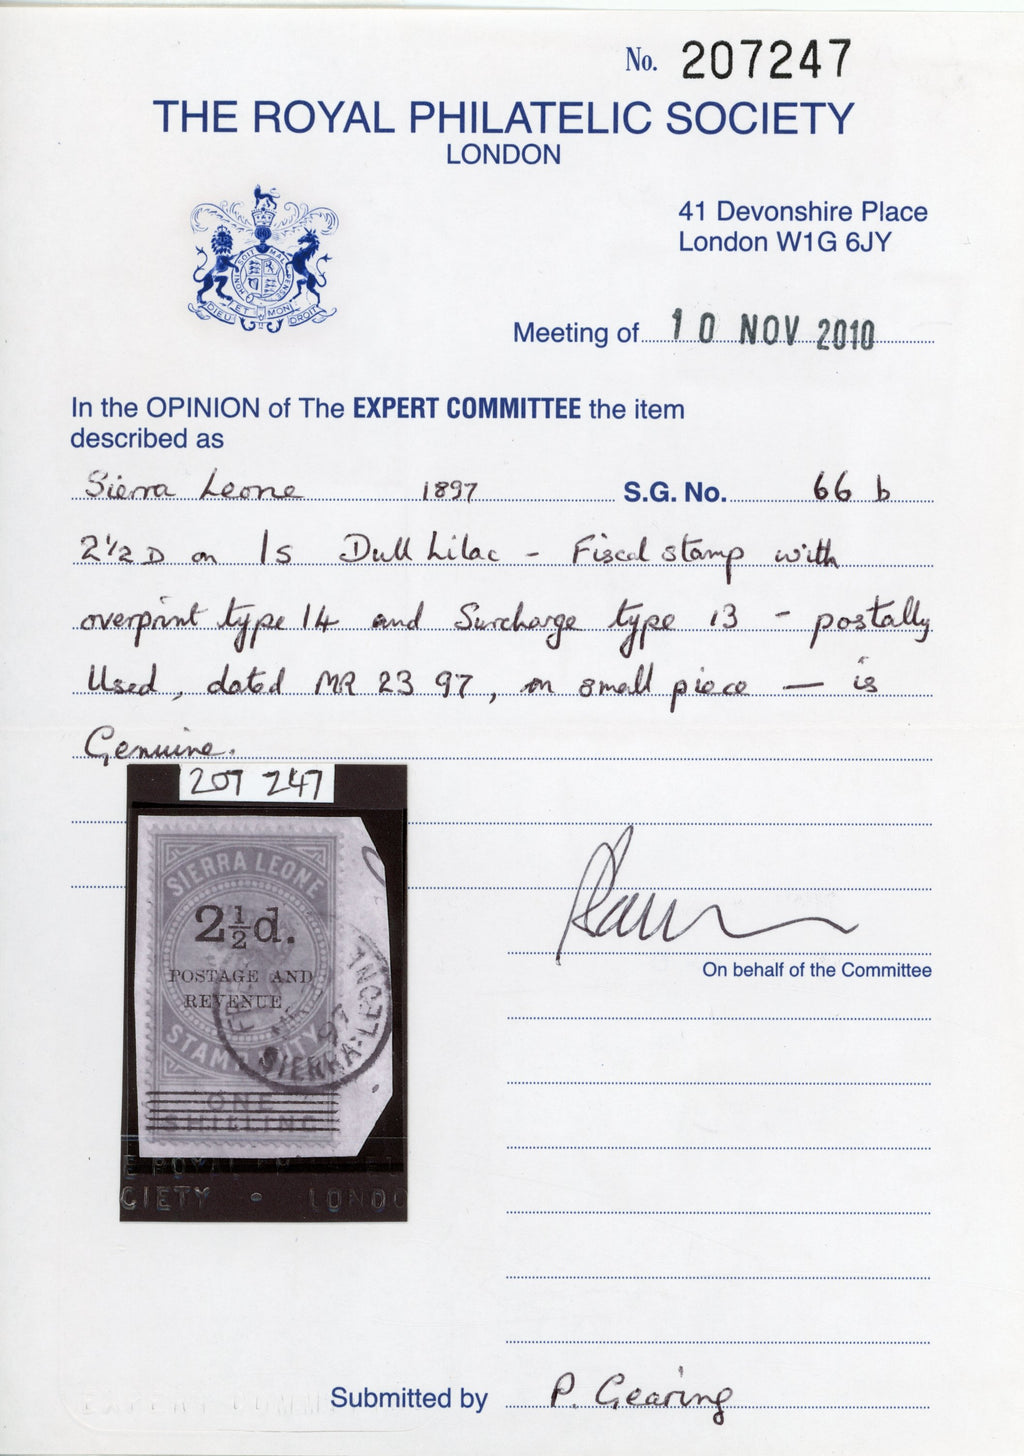 No. 207247
THE ROYAL PHILATELIC SOCIETY
LONDON
41 Devonshire Place
London W1G 6JY
SOIT MAL
HONI
PENSE
DIEU ET MON DROIT
Meeting of 10 NOV 2010
In the OPINION of The EXPERT COMMITTEE the item
described as
Sierra Leone 1897 S.G. No. 66 b
2½D on 1s Dull Lilac - Fiscal stamp with
overprint type 14 and Surcharge type 13 - postally
Used, dated MR 23 97, on small piece — is
Genuine.
207 247
SIERRA LEONE
2½d.
POSTAGE AND
REVENUE
STAMP
ONE
SHILLING
MR
97
SIERRA-LEONE
CIETY • LONDO
On behalf of the Committee
Submitted by P. Gearing